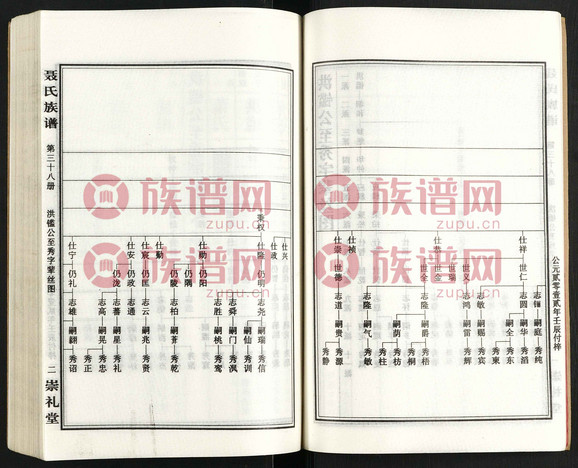 公元贰零壹贰年壬辰付梓
仕祥 世仁
志俪 嗣庭 秀纯
志圆 嗣华 秀滔
嗣仝 秀东
秀宾
仕恭
世义 志敏 嗣赐 秀亮
志鸿 嗣雷 秀辉
世瑞
世金
世全 志隆 嗣爵 秀梧
秀桐
嗣荫 秀枋
秀柱
志隆 嗣气 秀敏
仕祯
仕崇 世德 志道 嗣贵 秀源
秀静
仕兴
仕政
秉权 仕隆 仍明 志尧 嗣瑞 秀信
嗣仙 秀训
志舜 嗣门 秀沨
志胜 嗣桃 秀鸾
仕勋 仍阳
仍隅
仍陵 志柏 嗣菁 秀乾
仕勤
仕宸 仍匡 志云 嗣兆 秀贤
仕安 仍政 志通
仍泷 志蕃 嗣星 秀礼
志高 嗣晃 秀忠
秀正
仕宁 仍礼 志雄 嗣翮 秀诏
聂氏族谱
第三十八册
洪镒公至秀字辈丝图
二
崇礼堂
族谱网
zupu.cn
族谱网
zupu.cn
族谱网
zupu.cn
族谱网
zupu.cn